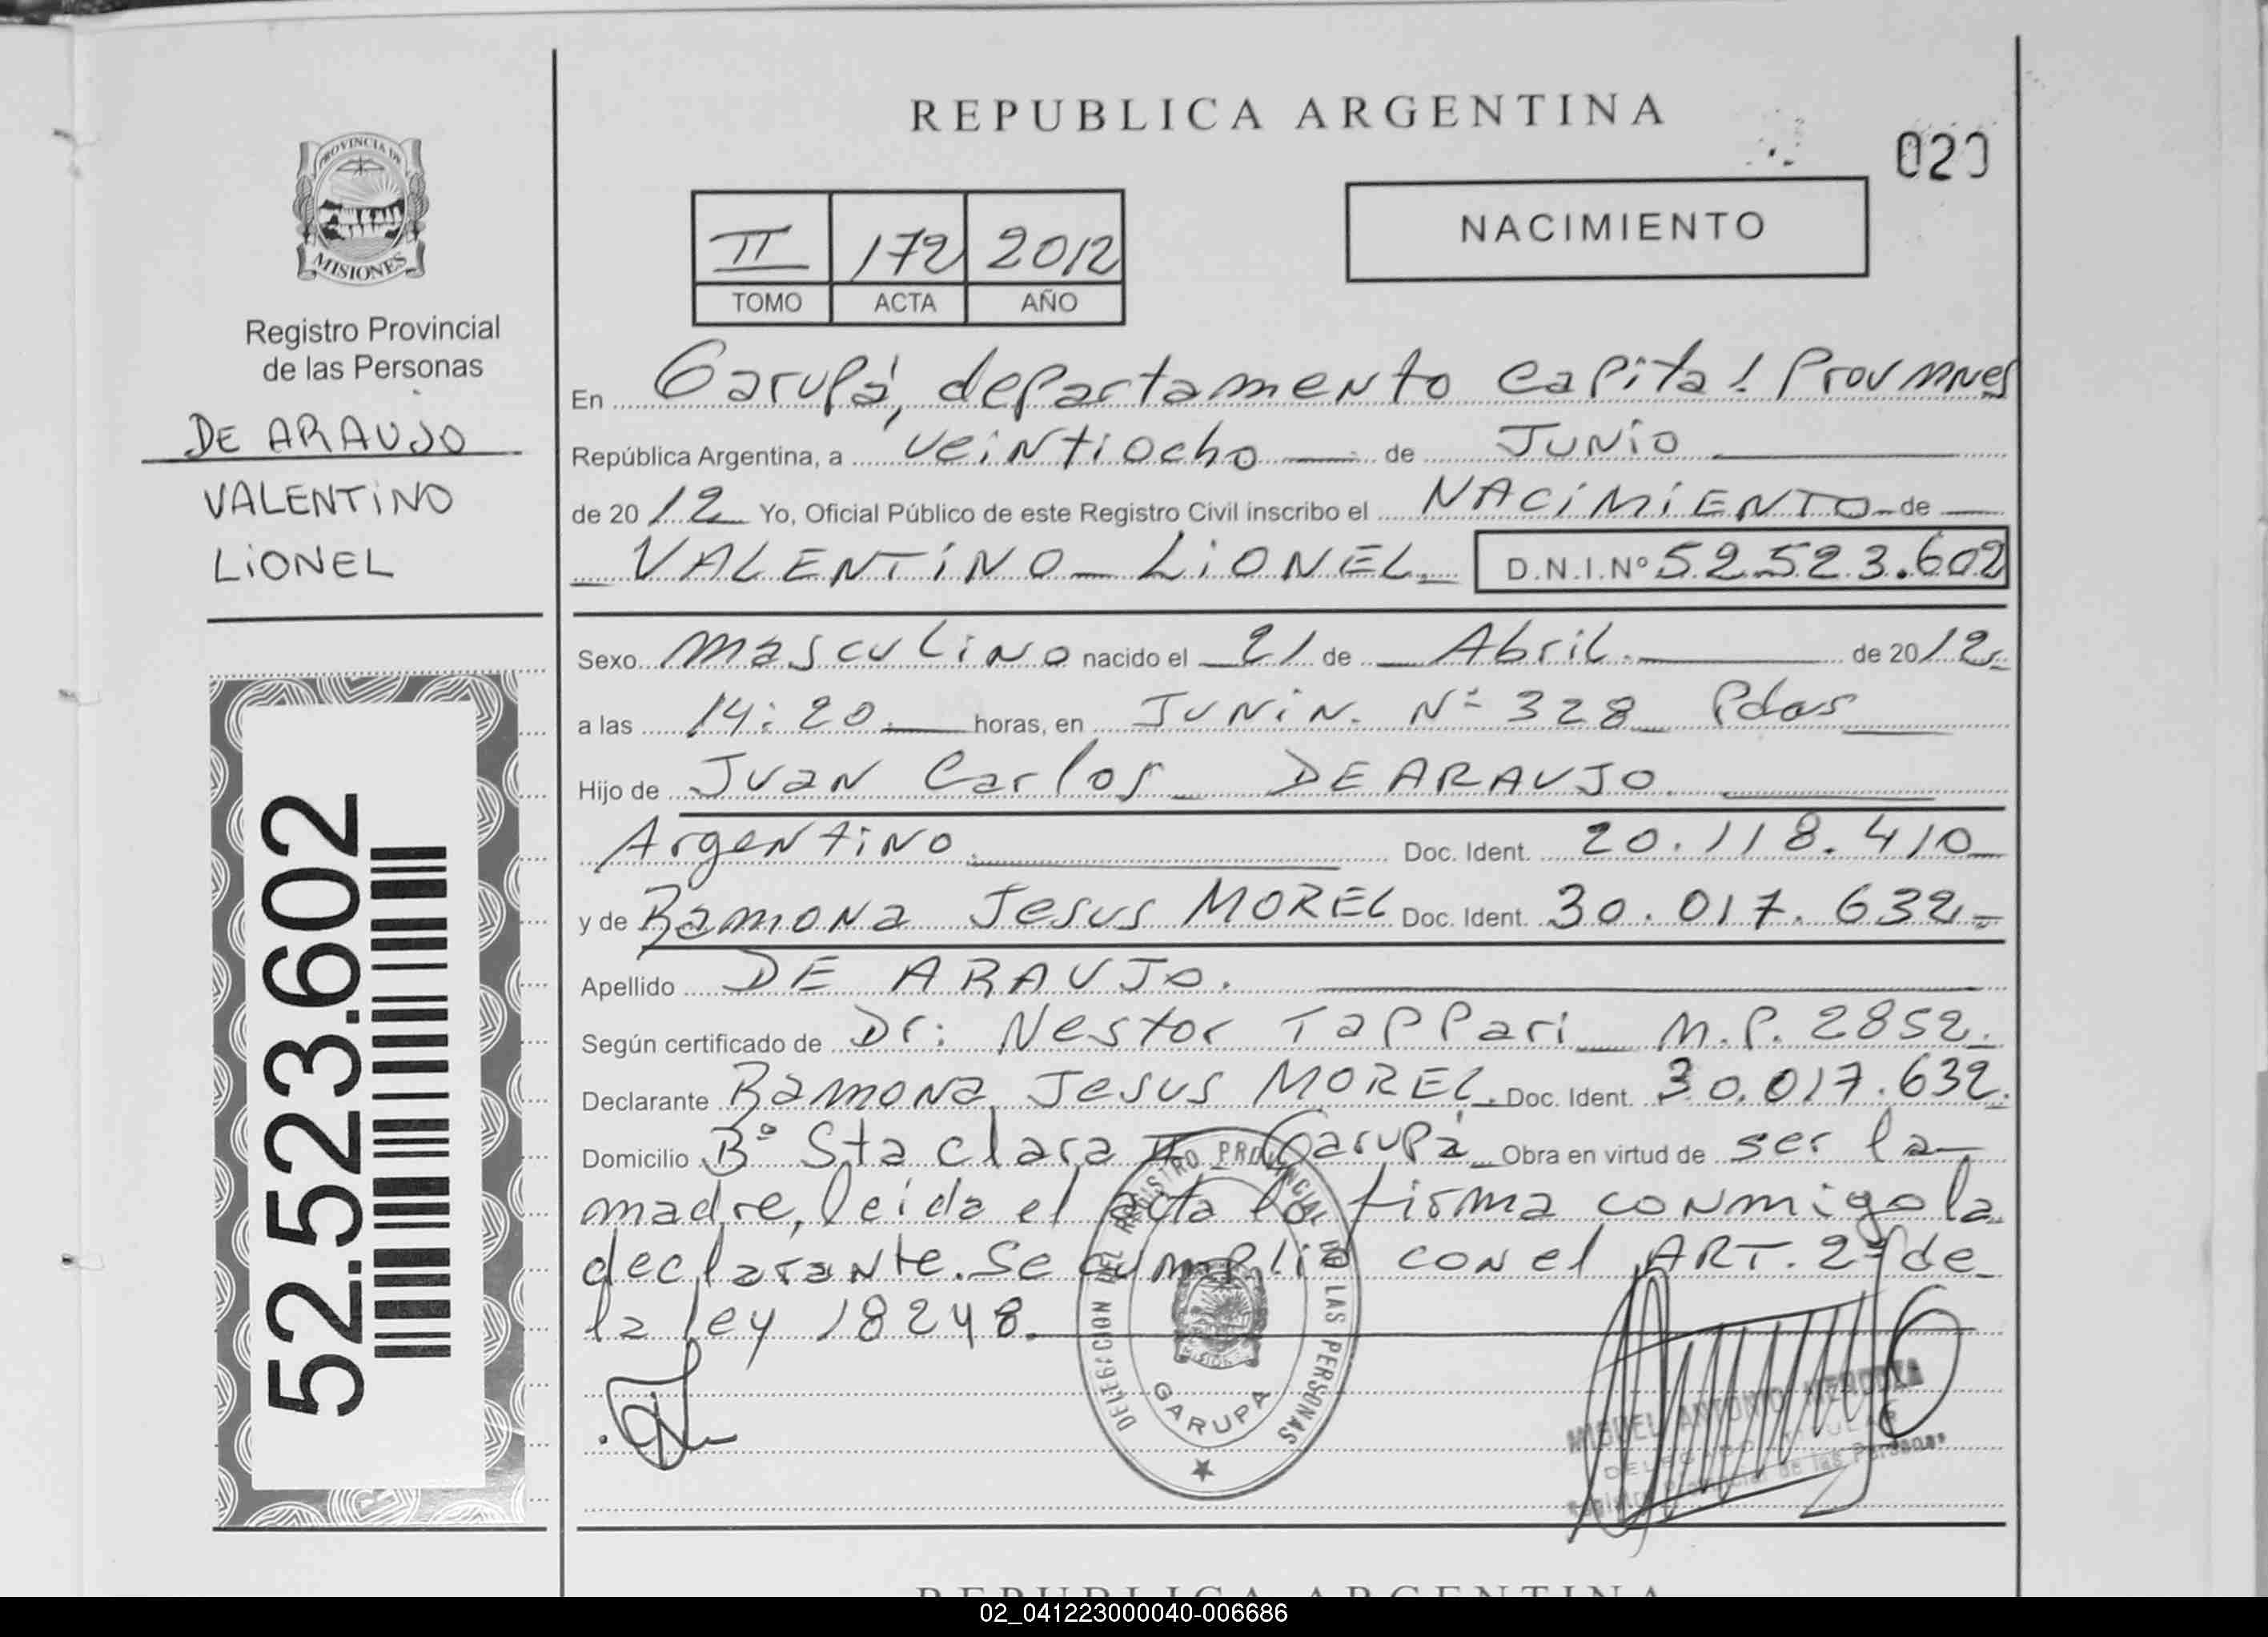 REPUBLICA ARGENTINA
020
NACIMIENTO
II 172 2012
TOMO ACTA AÑO
PROVINCIA DE
MISIONES
Registro Provincial
de las Personas
DE ARAUJO
VALENTINO
LIONEL
52.523.602
En Garupá, departamento capital Prov Mnes
República Argentina, a veintiocho de Junio
de 2012 Yo, Oficial Público de este Registro Civil inscribo el NACIMIENTO de
VALENTINO LIONEL D.N.I.Nº 52.523.602
Sexo masculino nacido el 21 de Abril de 2012
a las 14:20 horas, en Junin Nº 328 Pdas
Hijo de Juan Carlos DE ARAUJO
Argentino Doc. Ident. 20.118.410
y de Ramona Jesus MOREL Doc. Ident. 30.017.632
Apellido DE ARAUJO.
Según certificado de Dr: Nestor Tappari M.P. 2852.
Declarante Ramona Jesus MOREL. Doc. Ident. 30.017.632.
Domicilio Bº Sta clara II Garupá Obra en virtud de ser la
madre, leida el acta lo firma conmigo la
declarante. Se cumplió con el ART. 2º de
la ley 18248.
DELEGACION DEL REGISTRO PROVINCIAL DE LAS PERSONAS
MISIONES
GARUPA
MIGUEL ANTONIO MENDOZA
DELEGADO TITULAR
Registro Provincial de las Personas
REPUBLICA ARGENTINA
02_041223000040-006686